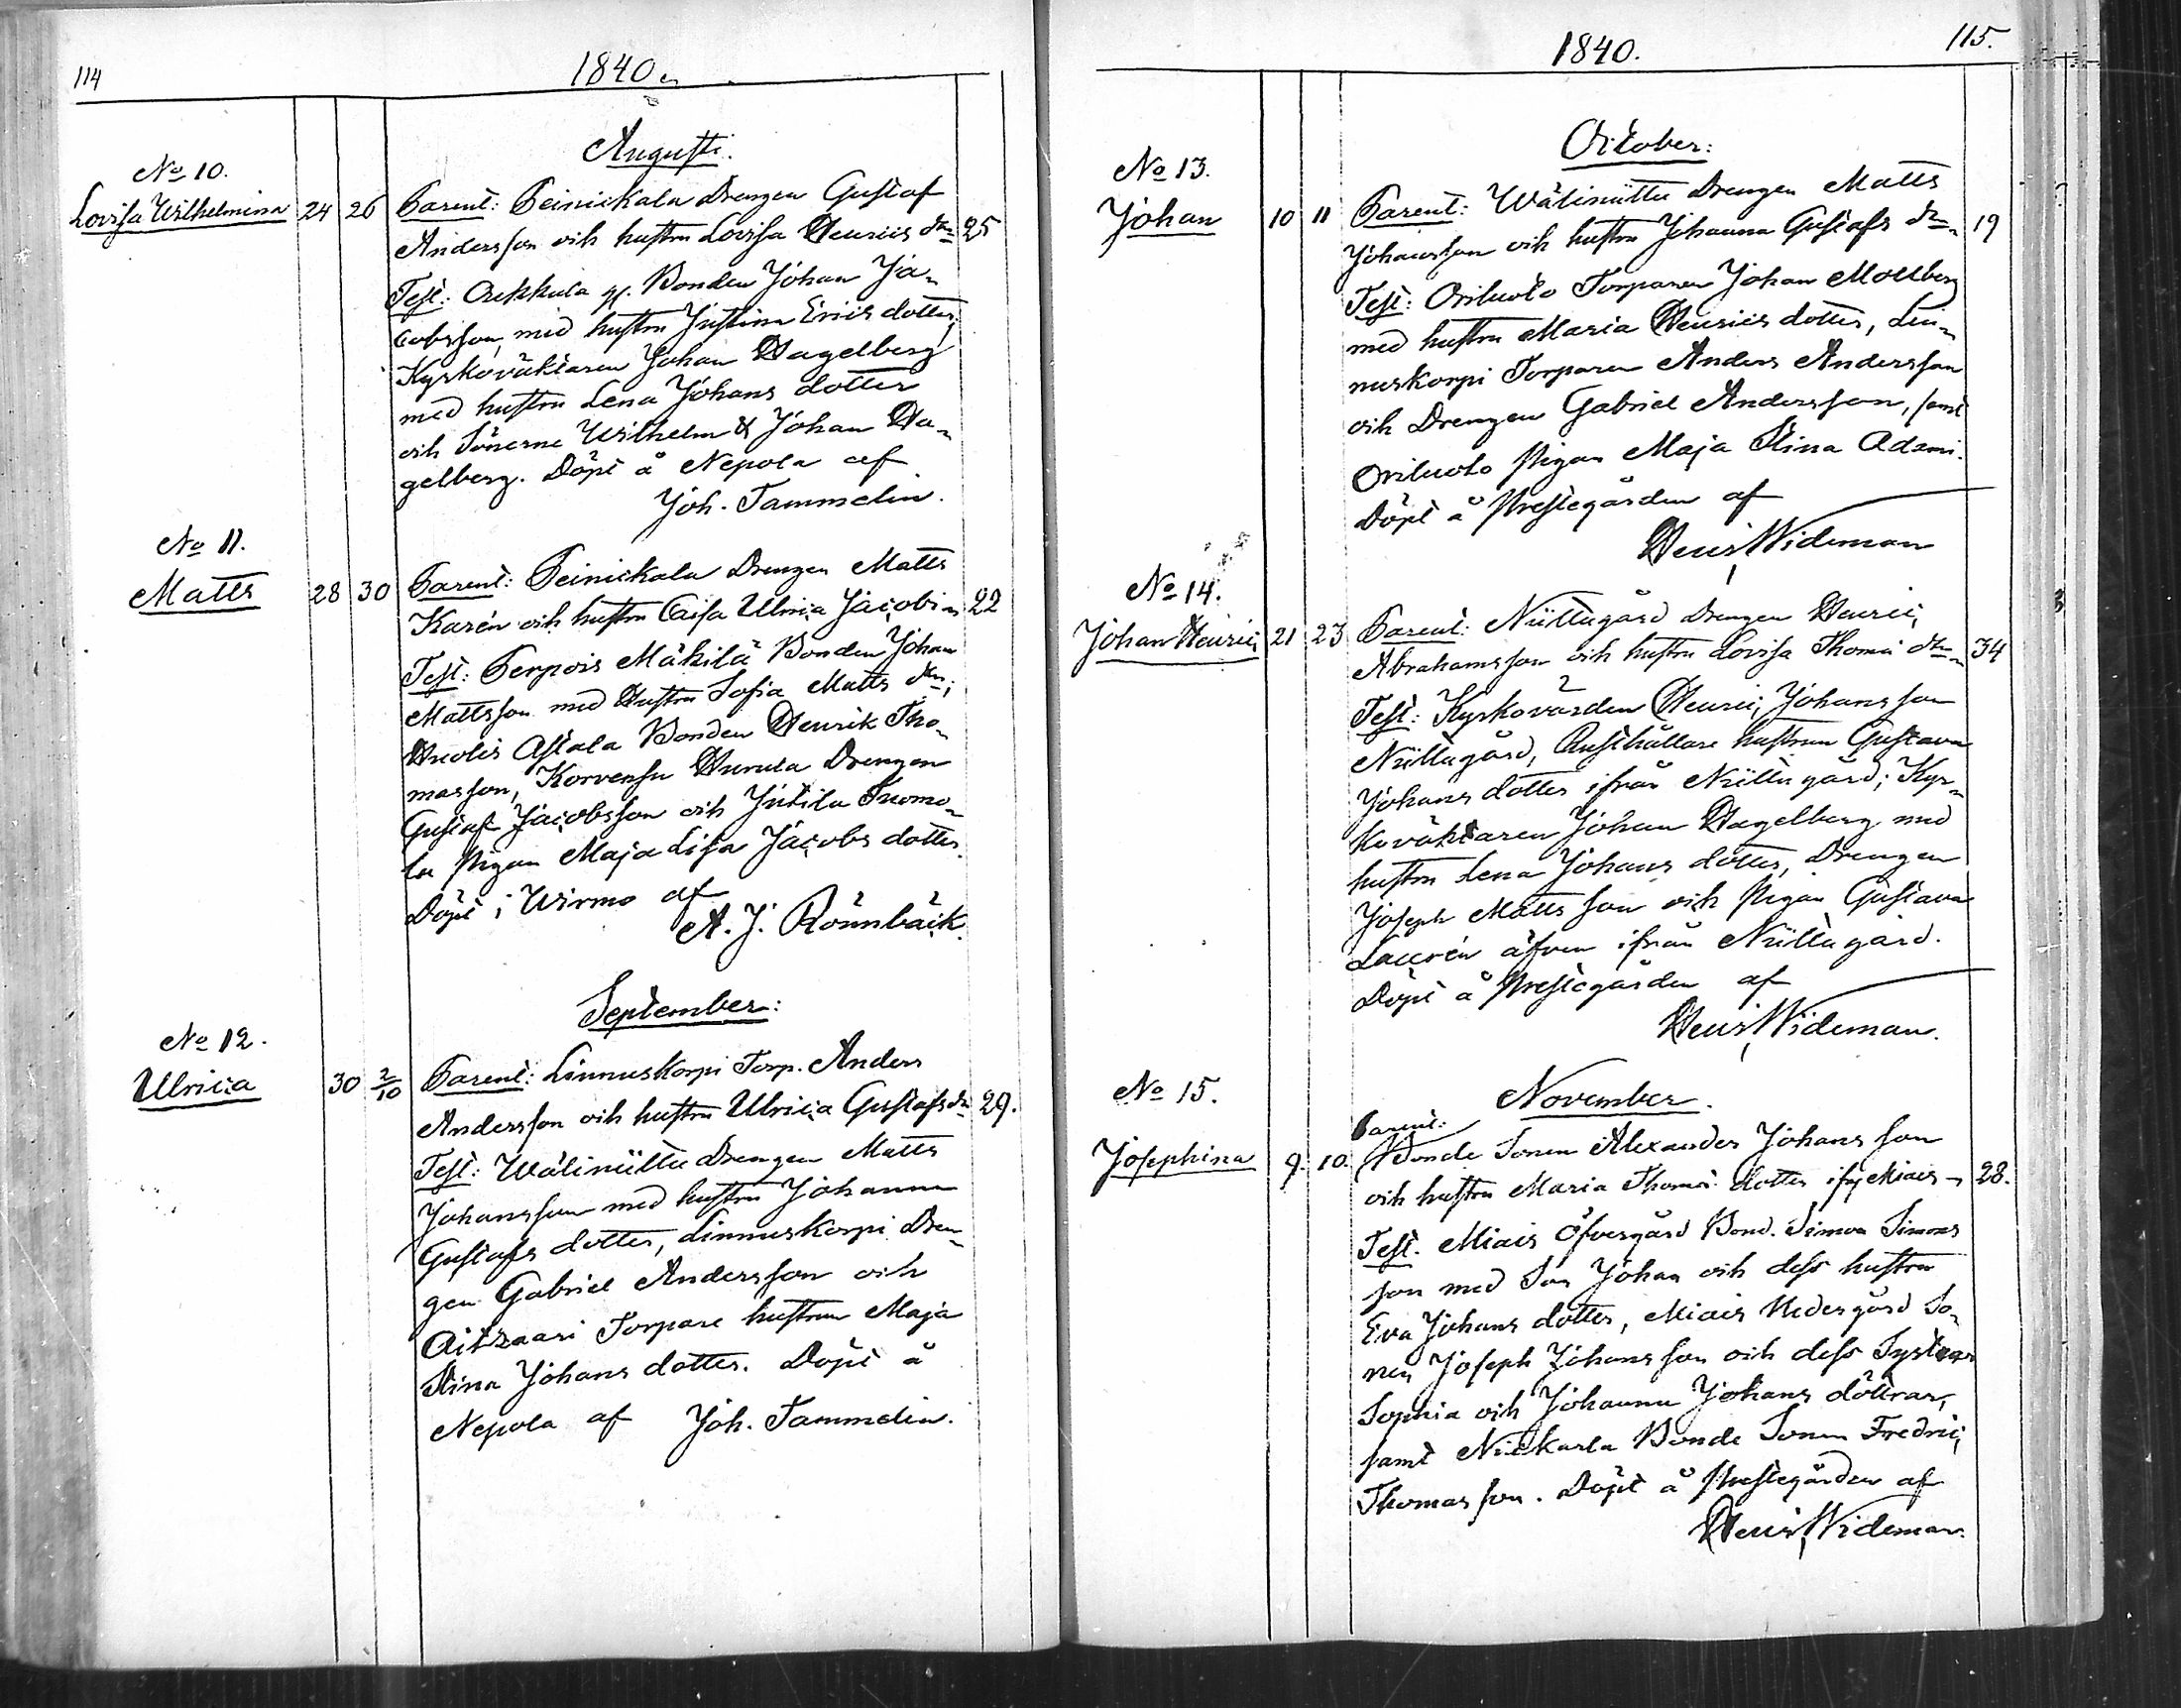 114
1840.
Augusti.
No 10.
Lovisa Wilhelmina 24 26 Parent: Peinickala Drengen Gustaf
Andersson och hustru Lovisa Henrics dr 25
Test: Orekkula gl. Bonden Johan Ja-
cobsson, med hustru Justina Erics dotter,
Kyrkoväktaren Johan Hagelberg
med hustru Lena Johans dotter
och Sönerne Wilhelm & Johan Ha-
gelberg. Döpt å Nepola af
Joh. Tammelin.
No 11.
Matts 28 30 Parent: Peinickala Drengen Matts
Karén och hustru Caisa Ulrica Jacobi 22
Test: Perpois Mäkilä Bonden Johan
Mattsson med Hustru Sofia Matts dr;
Hucolis Astala Bonden Henrik Tho-
masson, Korvensu Hurula Drengen
Gustaf Jacobsson och Jutila Tuomo-
la Pigan Maja Lisa Jacobs dotter.
Döpt i Wirmo af
A. J. Rönnbäck.
September:
No 12.
Ulrica 30 2/10 Parent: Linnuskorpi Torp. Anders
Andersson och hustru Ulrica Gustafs dr 29.
Test: Wäliniittu Drengen Matts
Johansson med hustru Johanna
Gustafs dotter, Linnuskorpi Dren-
gen Gabriel Andersson och
Aitzaari Torpare hustrun Maja
Stina Johans dotter. Döpt å
Nepola af Joh. Tammelin.
115.
1840.
October:
No 13.
Johan 10 11 Parent: Wäliniittu Drengen Matts
Johansson och hustru Johanna Gustafs dr 19
Test: Oriluoto Torparen Johan Mollberg
med hustru Maria Henrics dotter, Lin-
nuskorpi Torparen Anders Andersson
och Drengen Gabriel Andersson, samt
Oriluoto Pigan Maja Stina Adami.
Döpt å Prestegården af
Henr. Wideman
No 14.
Johan Henric 21 23 Parent: Niittugård Drengen Henric
Abrahamsson och hustru Lovisa Thomæ dr 34
Test: Kyrkovärden Henric Johansson
Niittugård, Rusthållare hustrun Gustava
Johans dotter ifrån Niittugård; Kyr-
koväktaren Johan Hagelberg med
hustru Lena Johans dotter, Drengen
Joseph Matts son och Pigan Gustava
Laurén äfven ifrån Niittugård.
Döpt å Prestegården af
Henr. Wideman.
November.
No 15.
Parent:
Josephina 9. 10. Bonde Sonen Alexander Johans son
och hustru Maria Thomæ dotter ifr Miais 28.
Test. Miais Öfvergård Bond. Simon Simons
son med Son Johan och dess hustru
Eva Johans dotter, Miais Nedergård So-
nen Joseph Johans son och dess Systrar
Sophia och Johanna Johans döttrar,
samt Nickarla Bonde Sonen Fredric
Thomas son. Döpt å Prestegården af
Henr. Wideman.